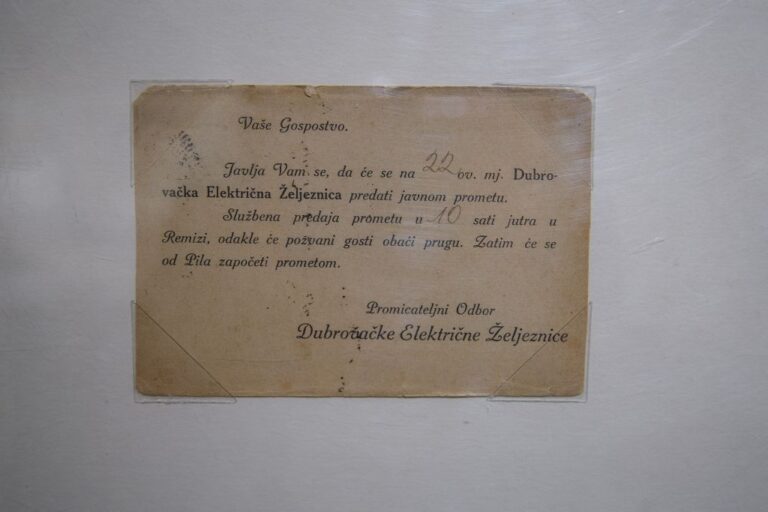 Vaše Gospostvo.
Javlja Vam se, da će se na 22 ov. mj. Dubro-
vačka Električna Željeznica predati javnom prometu.
Službena predaja prometu u 10 sati jutra u
Remizi, odakle će pozvani gosti obaći prugu. Zatim će se
od Pila započeti prometom.
Promicateljni Odbor
Dubrovačke Električne Željeznice